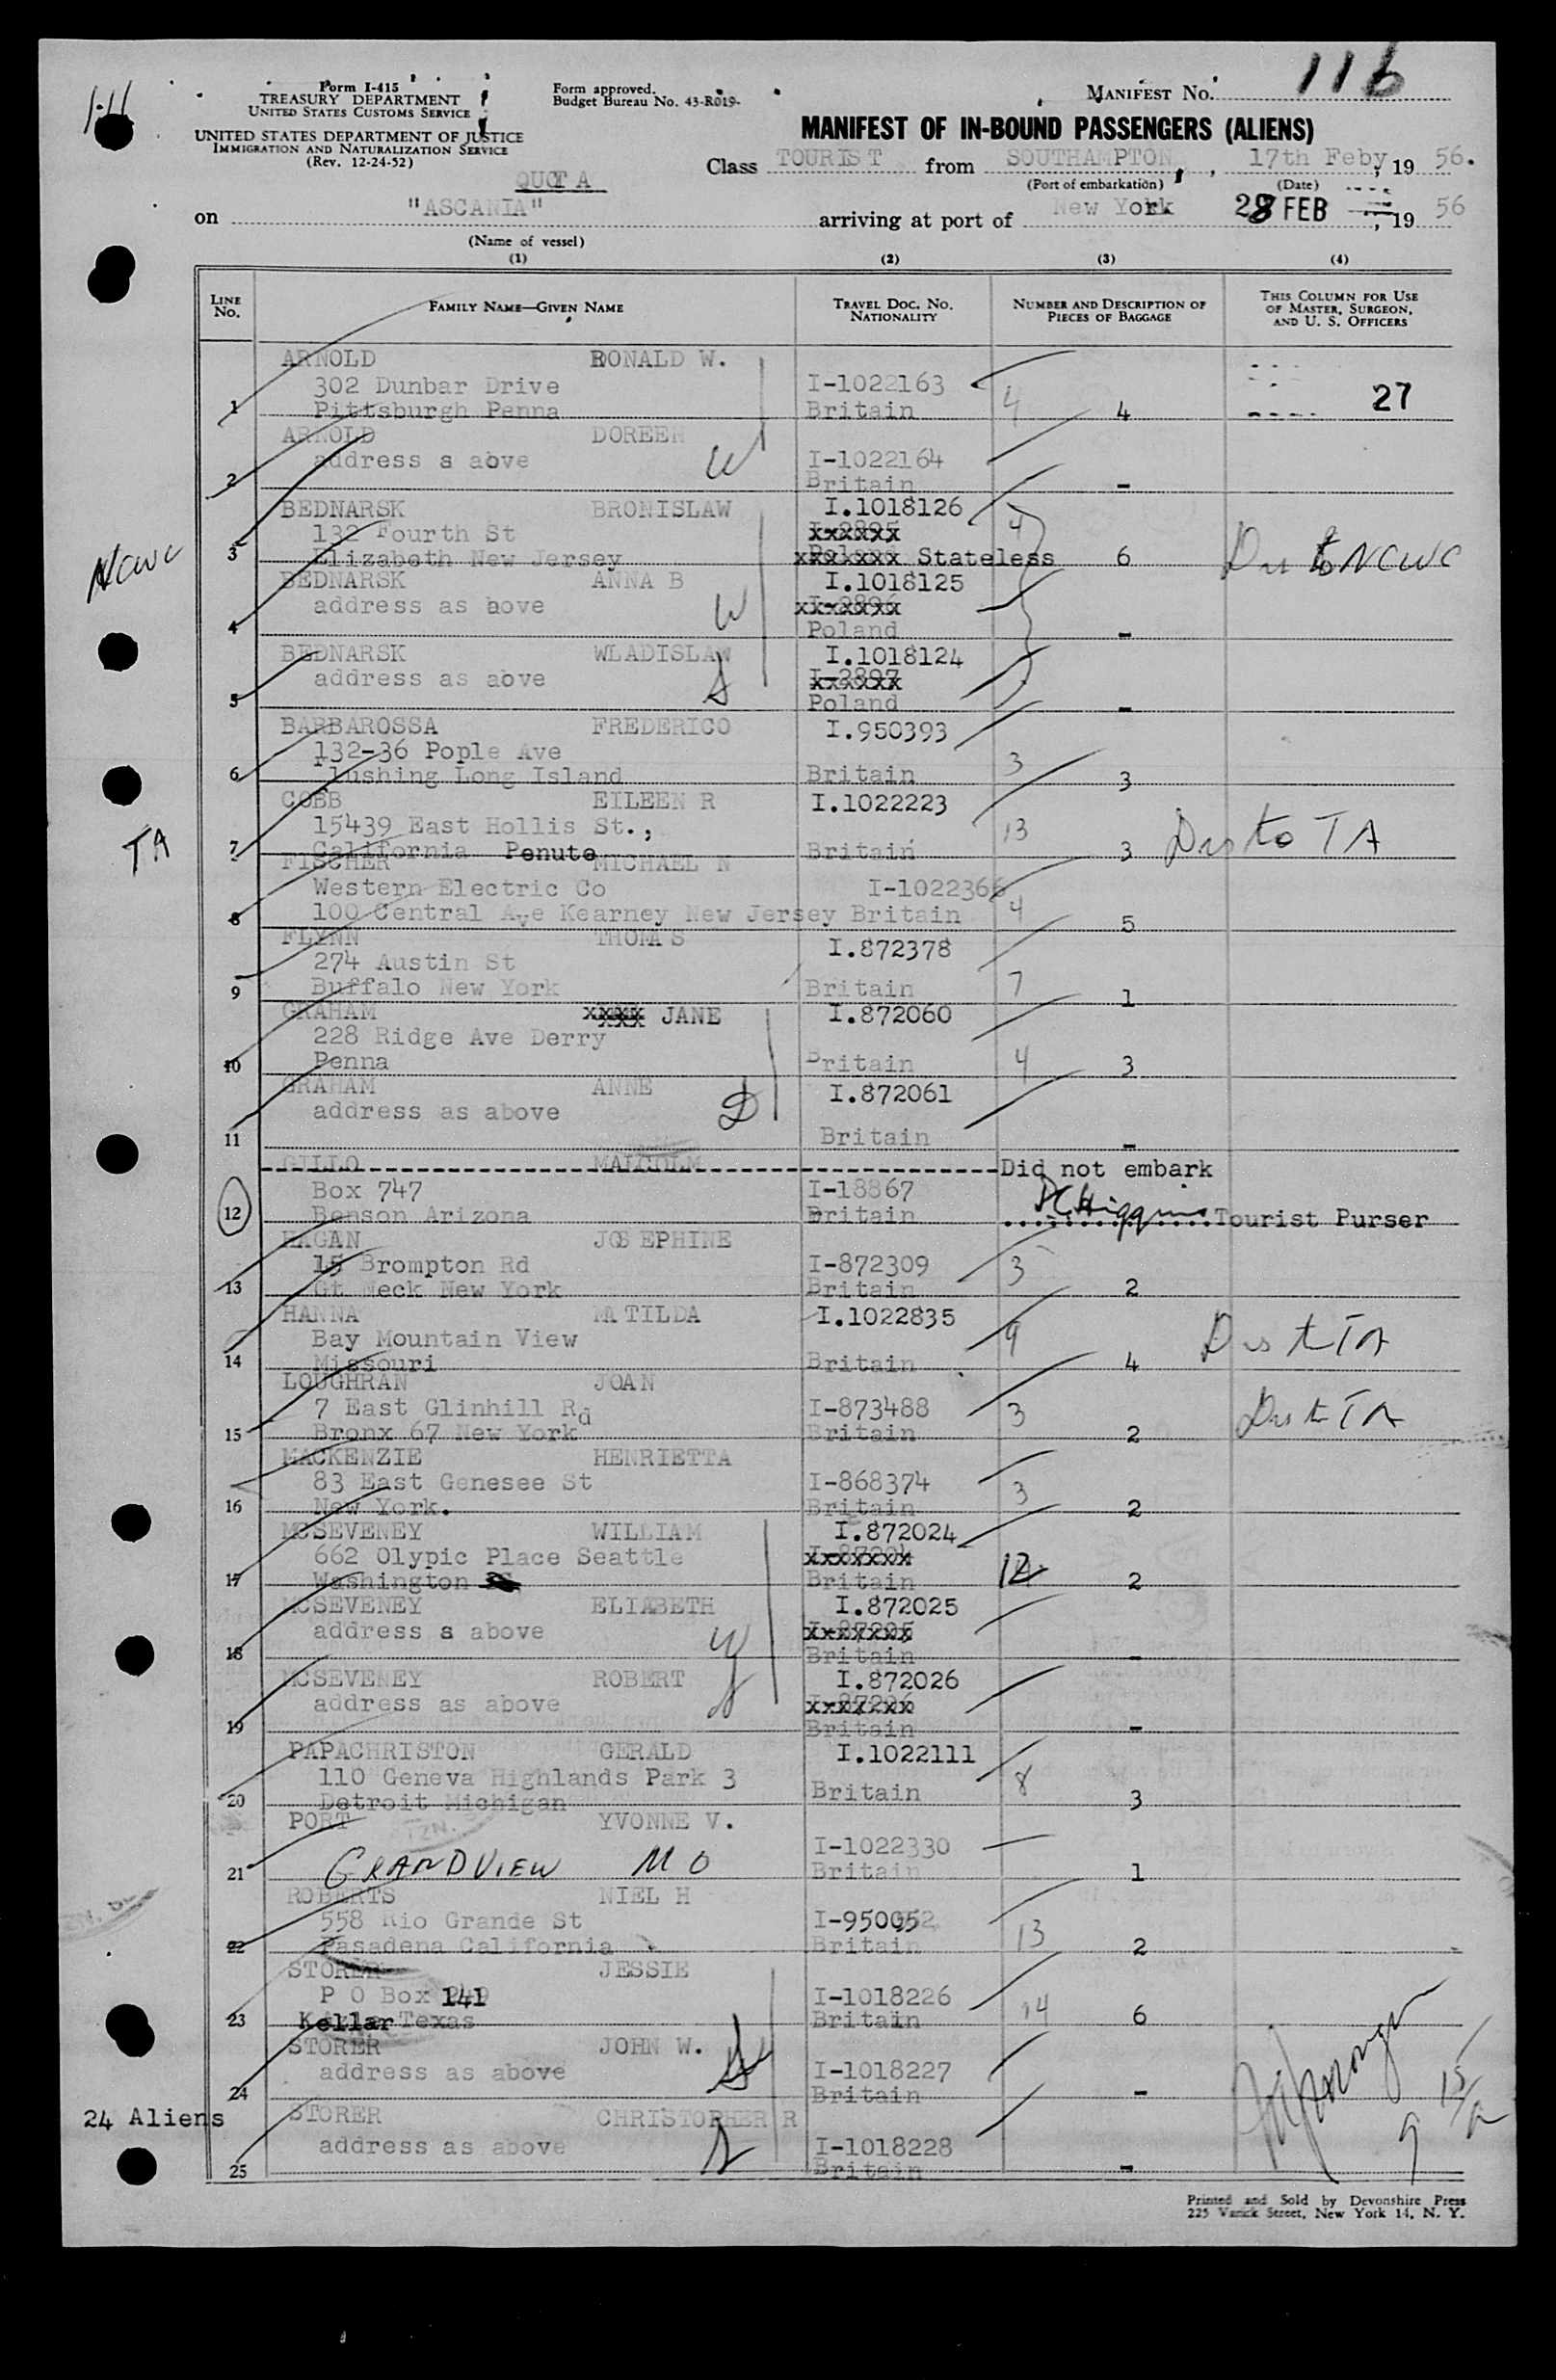 116
Form I-415
TREASURY DEPARTMENT
UNITED STATES CUSTOMS SERVICE
UNITED STATES DEPARTMENT OF JUSTICE
IMMIGRATION AND NATURALIZATION SERVICE
(Rev. 12-24-52)
Form approved.
Budget Bureau No. 43-R019-
MANIFEST No.
MANIFEST OF IN-BOUND PASSENGERS (ALIENS)
Class TOURIST from SOUTHAMPTON, 17th Feby, 19 56.
(Port of embarkation) (Date)
QUOTA
on "ASCANIA" arriving at port of New York 28 FEB, 19 56
(Name of vessel)
(1) (2) (3) (4)
LINE No. FAMILY NAME—GIVEN NAME TRAVEL DOC. NO. NATIONALITY NUMBER AND DESCRIPTION OF PIECES OF BAGGAGE THIS COLUMN FOR USE OF MASTER, SURGEON, AND U. S. OFFICERS
ARNOLD RONALD W.
302 Dunbar Drive I-1022163 4 27
1 Pittsburgh Penna Britain 4
ARNOLD DOREEN
address s above W I-1022164
2 Britain -
BEDNARSK BRONISLAW I.1018126
132 Fourth St xxxxxx 4
NCWC 3 Elizabeth New Jersey xxxxxxx Stateless 6 Dis to NCWC
BEDNARSK ANNA B I.1018125
address as above W xxxxxxx
4 Poland -
BEDNARSK WLADISLAW I.1018124
address as above S xxxxxx
5 Poland -
BARBAROSSA FREDERICO I.950393
132-36 Pople Ave
6 Flushing Long Island Britain 3 3
COBB EILEEN R I.1022223
15439 East Hollis St., 13
TA 7 California Penute Britain 3 Dis to TA
FISCHER MICHAEL N
Western Electric Co I-1022366
8 100 Central Ave Kearney New Jersey Britain 4 5
FLYNN THOMAS I.872378
274 Austin St
9 Buffalo New York Britain 7 1
GRAHAM xxxx JANE I.872060
228 Ridge Ave Derry
10 Penna Britain 4 3
GRAHAM ANNE I.872061
address as above D
11 Britain -
GILLO MALCOLM Did not embark
Box 747 I-18867
12 Benson Arizona Britain Tourist Purser
HAGAN JOSEPHINE
15 Brompton Rd I-872309 3
13 Gt Neck New York Britain 2
HANNA MATILDA I.1022835
Bay Mountain View 9
14 Missouri Britain 4 Dis to TA
LOUGHRAN JOAN
7 East Glinhill Rd I-873488 3
15 Bronx 67 New York Britain 2 Dis to TA
MACKENZIE HENRIETTA
83 East Genesee St I-868374 3
16 New York. Britain 2
MCSEVENEY WILLIAM I.872024
662 Olypic Place Seattle xxxxxxx
17 Washington Britain 12 2
MCSEVENEY ELIABETH I.872025
address s above W xxxxxxx
18 Britain -
MCSEVENEY ROBERT I.872026
address as above S xxxxxxx
19 Britain -
PAPACHRISTON GERALD I.1022111
110 Geneva Highlands Park 3 8
20 Detroit Michigan Britain 3
PORT YVONNE V.
I-1022330
21 GRANDVIEW MO Britain 1
ROBERTS NIEL H
558 Rio Grande St I-95005
22 Pasadena California Britain 13 2
STORER JESSIE
P O Box 141 I-1018226
23 Kellar Texas Britain 14 6
STORER JOHN W.
address as above S I-1018227
24 Britain -
24 Aliens STORER CHRISTOPHER R
address as above S I-1018228
25 Britain -
Printed and Sold by Devonshire Press
225 Varick Street, New York 14, N. Y.